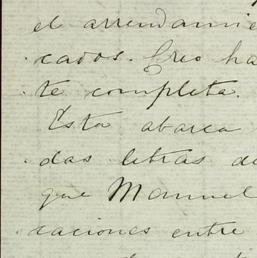 el arrendamie
cados. Creo ha
te completa.
Esta abarca
das letras de
que Manuel
caciones entre